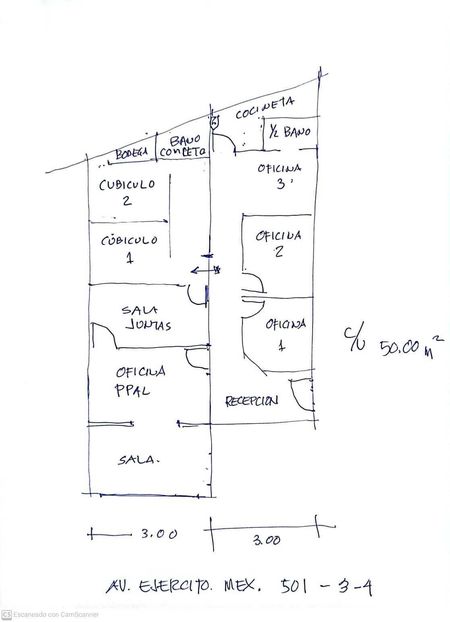 COCINETA
½ BAÑO
BAÑO
COMPLETO
BODEGA
CUBICULO
2
OFICINA
3
CUBICULO
1
OFICINA
2
SALA
JUNTAS
OFICINA
1
C/U 50.00 M²
OFICINA
PPAL
RECEPCION
SALA.
3.00
3.00
AV. EJERCITO. MEX. 501 - 3-4
CS Escaneado con CamScanner